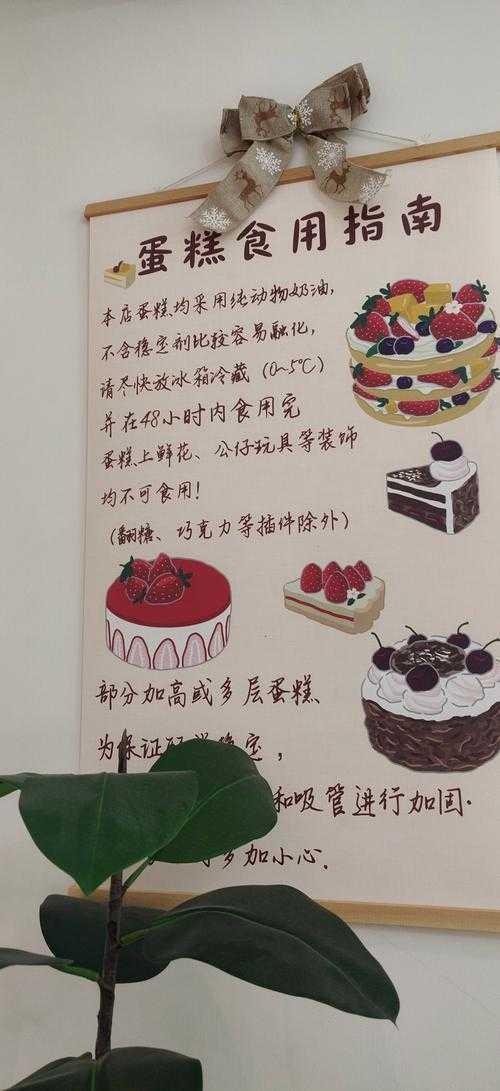 蛋糕食用指南
本店蛋糕均采用纯动物奶油,
不含稳定剂比较容易融化,
请尽快放冰箱冷藏(0~5℃)
并在48小时内食用完
蛋糕上鲜花、公仔玩具等装饰
均不可食用!
(翻糖、巧克力等插件除外)
部分加高或多层蛋糕
为保证 稳定,
和吸管进行加固.
多加小心.